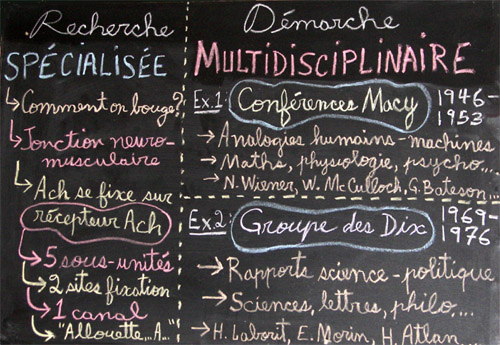 Recherche
SPÉCIALISÉE
Comment on bouge?
Jonction neuro-
musculaire
Ach se fixe sur
récepteur Ach
5 sous-unités
2 sites fixation
1 canal
"Allouette...A..."
Démarche
MULTIDISCIPLINAIRE
Ex.1: Conférences Macy 1946-
1953
Analogies humains-machines
Maths, physiologie, psycho...
N. Wiener, W. McCulloch, G. Bateson...
Ex.2: Groupe des Dix 1969-
1976
Rapports science-politique
Sciences, lettres, philo...
H. Laborit, E. Morin, H. Atlan...